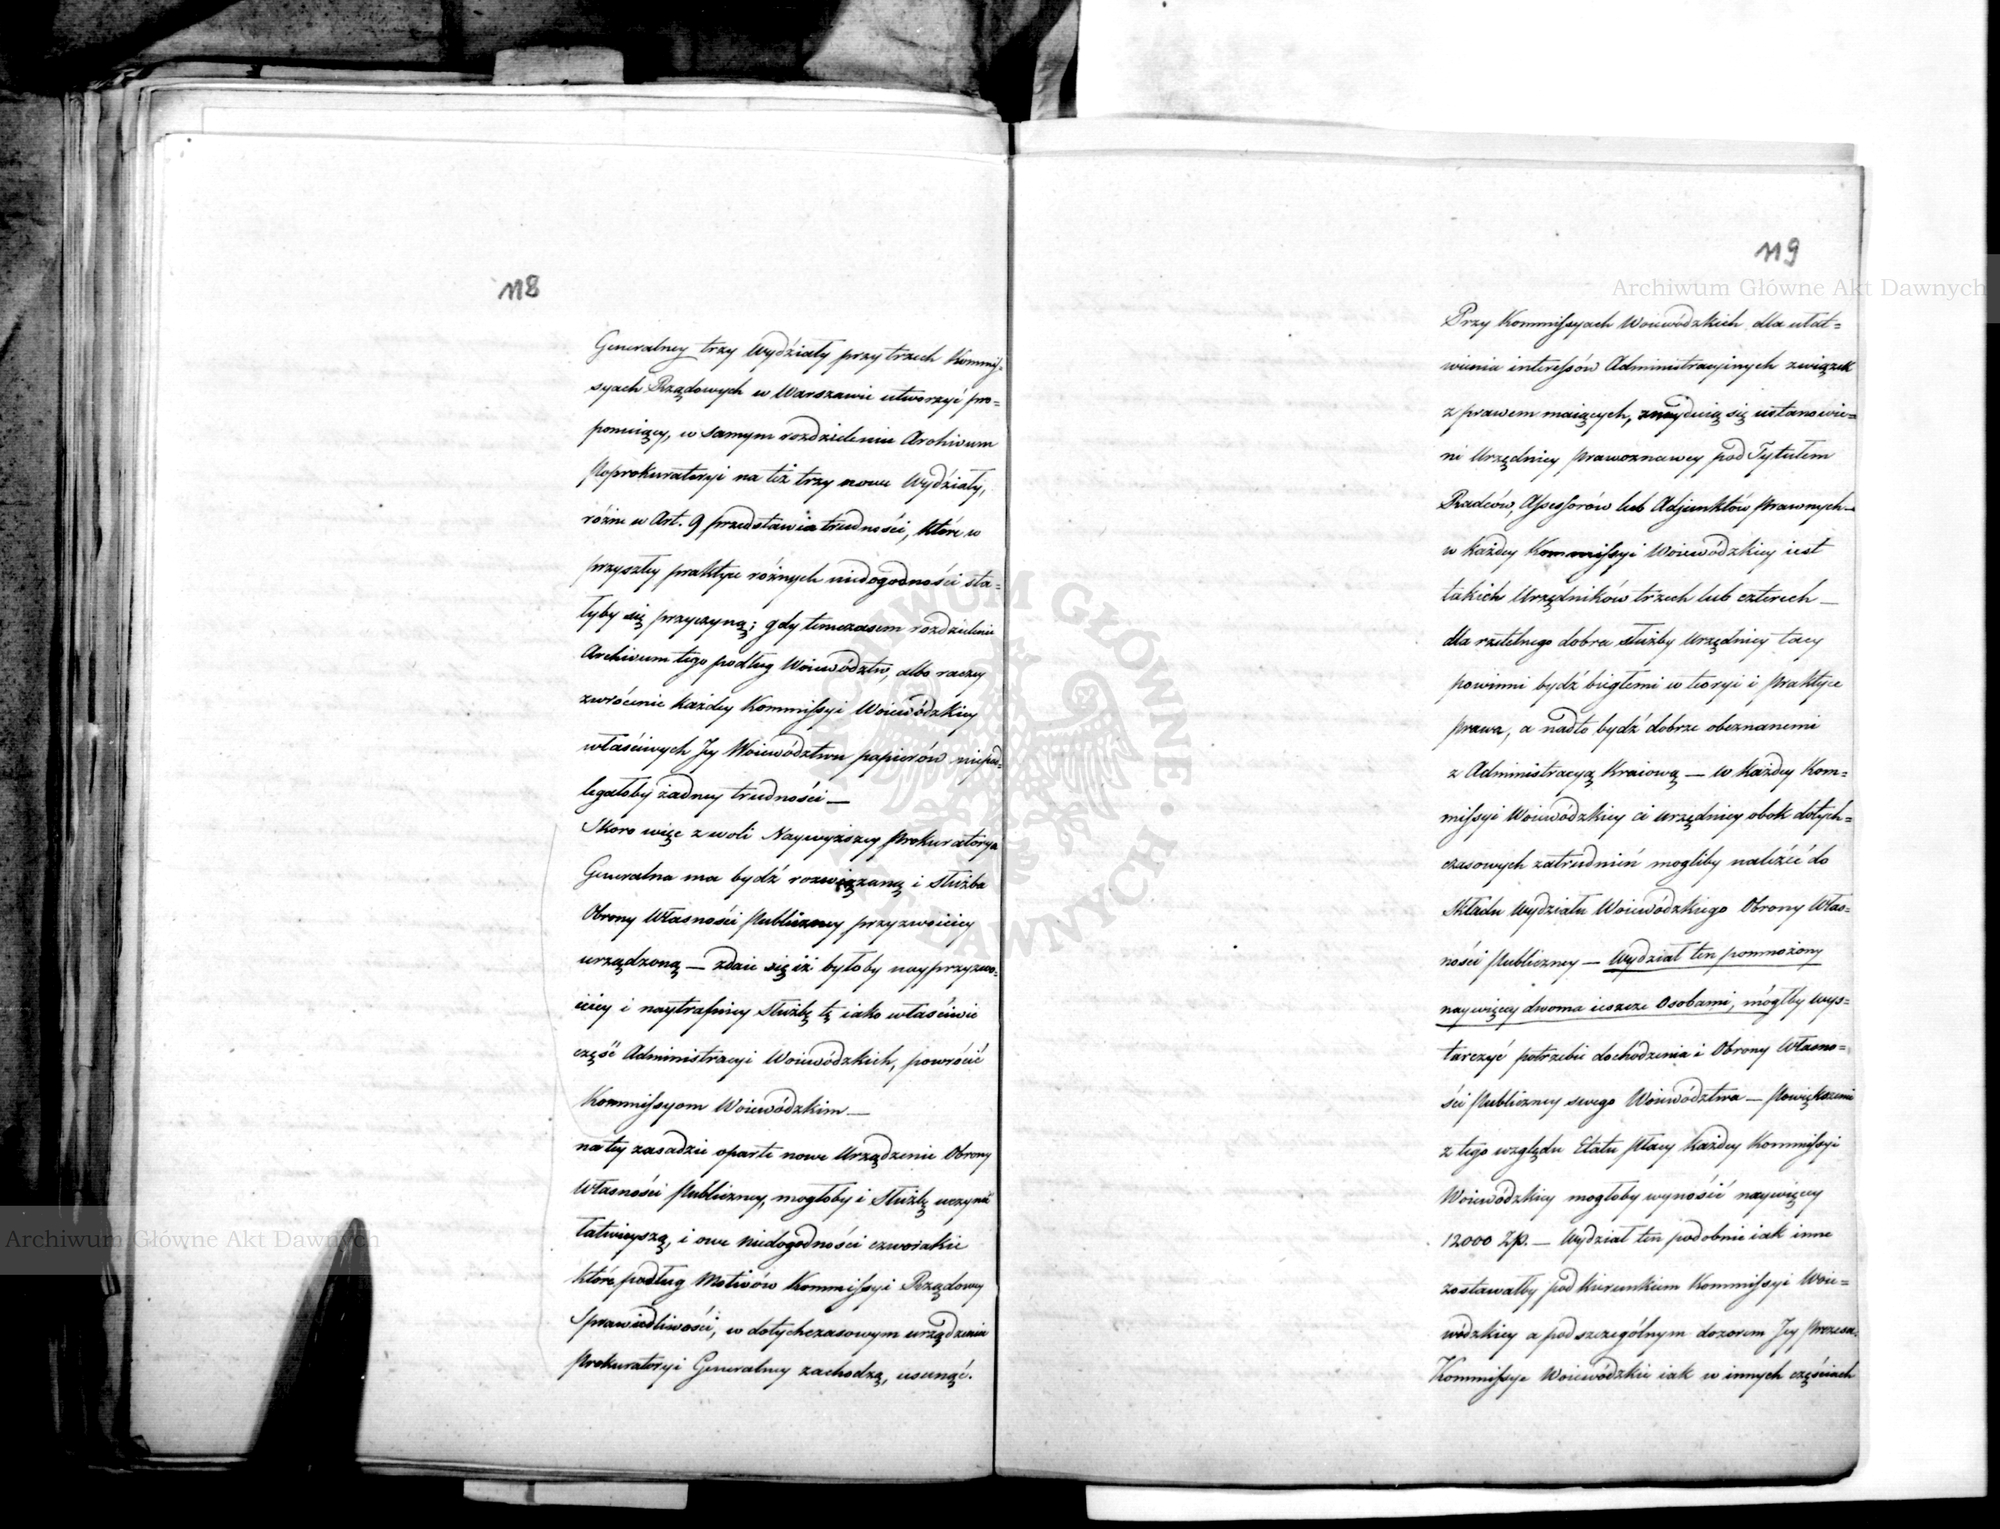 118
Generalney trzy Wydziały przy trzech Kommis-
syach Rządowych w Warszawie utworzyć pro-
ponuiący, w samym rozdzieleniu Archivum
Poprokuratoryi na też trzy nowe Wydziały,
różne w Art. 9 przedstawia trudności, które w
przyszłey praktyce różnych niedogodności sta-
łyby się przyczyną; gdy tymczasem rozdzielenie
Archivum tego podług Woiewództw, albo raczey
zwrócenie każdey Kommissyi Woiewódzkiey
właściwych Jey Woiewództwu papierów niepod-
legałoby żadney trudności —
Skoro więc z woli Naywyższey Prokuratorya
Generalna ma bydź rozwiązaną i służba
Obrony Własności Publiczney przyzwoiciey
urządzoną — zdaie się iż byłoby nayprzyzwo-
iciey i naytrafniey Służbę tę iako właściwie
część Administracyi Woiewódzkich, powrócić
Kommissyom Woiewódzkim —
na tey zasadzie oparte nowe Urządzenie Obrony
Własności Publiczney, mogłoby i Służbę uczynić
łatwieyszą, i owe niedogodności czworakie
które podług Motivów Kommissyi Rządowey
Sprawiedliwości, w dotychczasowym urządzeniu
Prokuratoryi Generalney zachodzą, usunąć.
119
Przy Kommissyach Woiewódzkich dla ułat-
wienia interessów Administracyinych związek
z prawem maiących, znayduią się ustanowie-
ni Urzędnicy Prawoznawcy pod Tytułem
Radców, Assessorów lub Adjunktów Prawnych —
w każdey Kommissyi Woiewódzkiey iest
takich Urzędników trzech lub czterech —
dla rzetelnego dobra służby Urzędnicy tacy
powinni bydź biegłemi w teoryi i praktyce
prawa, a nadto bydź dobrze obeznanemi
z Administracyą Kraiową — w każdey Kom-
missyi Woiewódzkiey ci Urzędnicy obok dotych-
czasowych zatrudnień mogliby należeć do
Składu Wydziału Woiewódzkiego Obrony Włas-
ności Publiczney — Wydział ten pomnożony
naywięcey dwoma ieszcze Osobami, mógłby wys-
tarczyć potrzebie dochodzenia i Obrony Własno-
ści Publiczney swego Woiewództwa — Powiększenie
z tego względu Etatu Płacy każdey Kommissyi
Woiewódzkiey mogłoby wynosić naywięcey
12000 Złp. — Wydział ten podobnie iak inne
zostawałby pod kierunkiem Kommissyi Woie-
wódzkiey a pod szczególnym dozorem Jey Prezesa.
Kommissye Woiewódzkie iak w innych częściach
Archiwum Główne Akt Dawnych
Archiwum Główne Akt Dawnych
ARCHIWUM GŁÓWNE AKT DAWNYCH